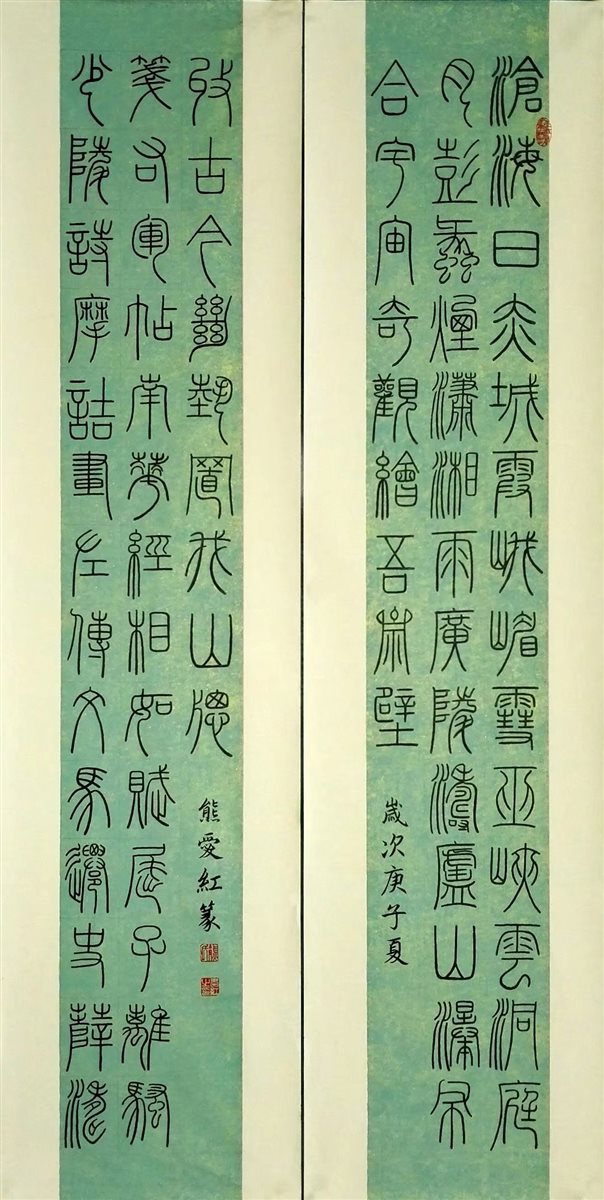 滄海日赤城霞峨嵋雪巫峽雲洞庭
月彭蠡煙瀟湘雨廣陵濤廬山瀑布
合宇宙奇觀繪吾齋壁
歲次庚子夏
少陵詩摩詰畫左傳文馬遷史薛濤
箋右軍帖南華經相如賦屈子離騷
收古今絕藝置我山窗
熊愛紅篆